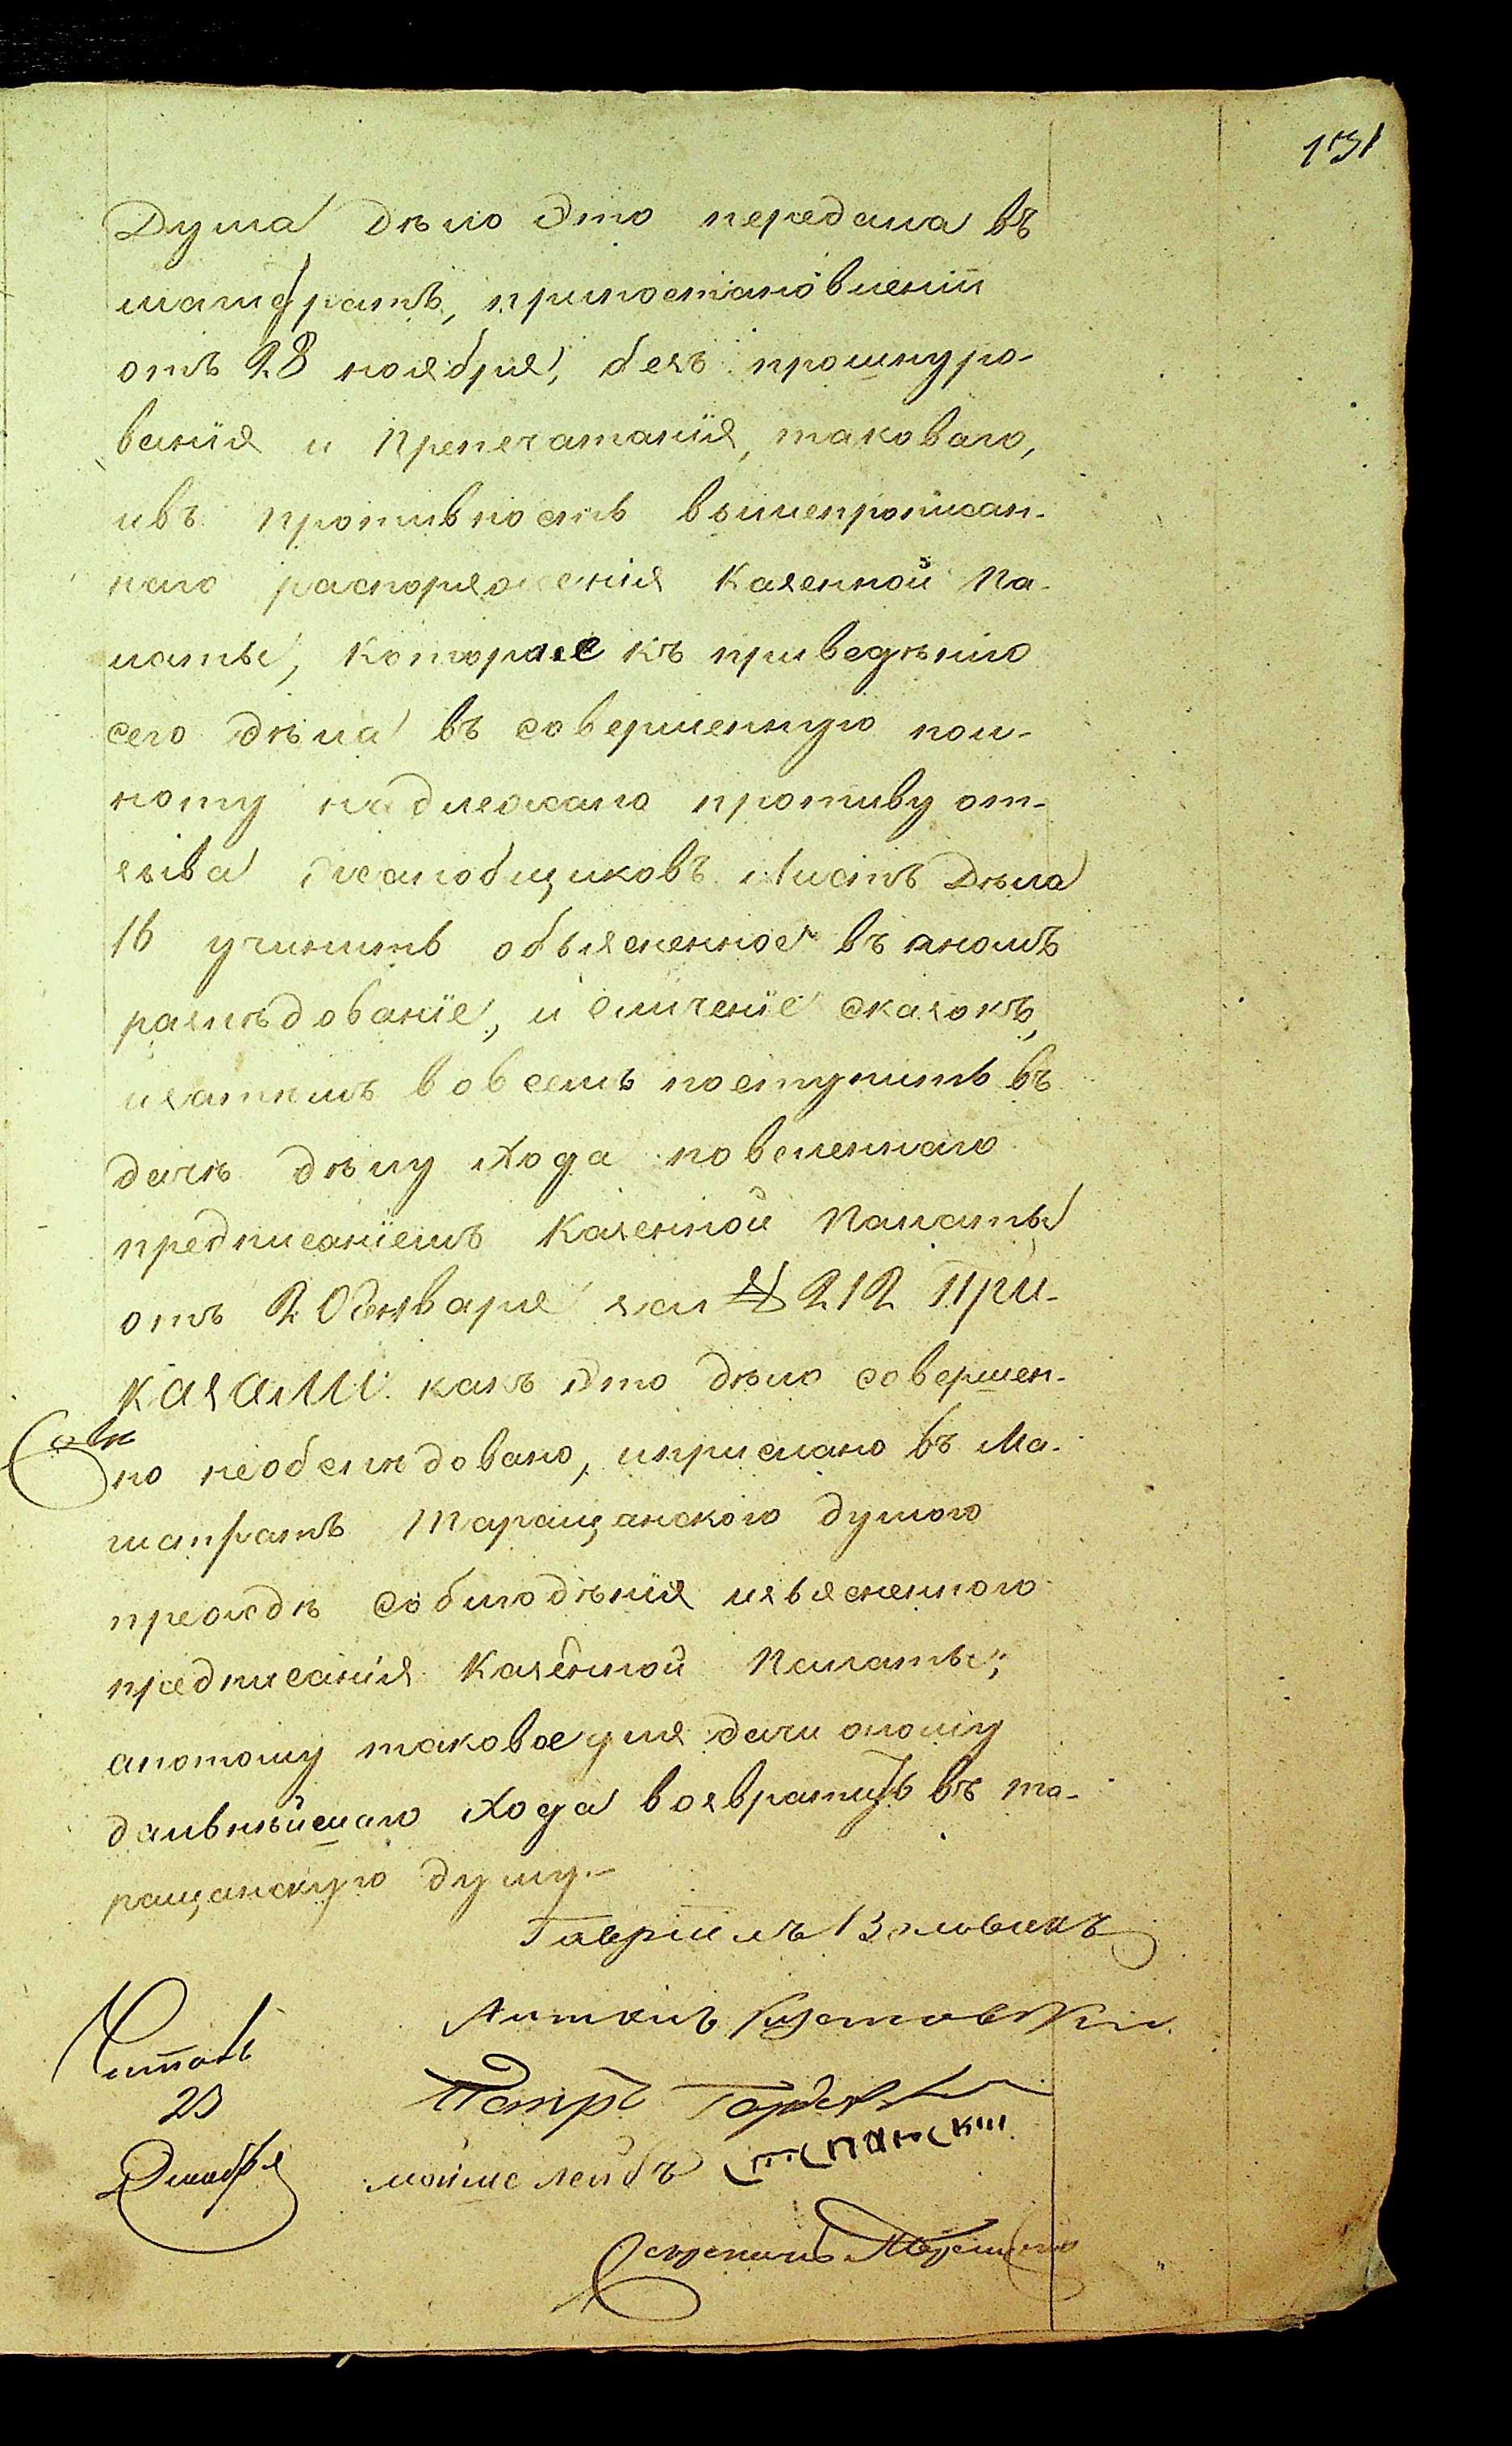 131
Дума дѣло Это передала въ
магистратъ, припостановленіи
отъ 28 ноября, безъ прошнуро-
ванія и Препечатанія, таковаго,
ивъ противность вышепрописан-
наго распоряженія Казенной Па-
латы, которае къ приведѣнію
сего дѣла въ совершенную пол-
ноту надлежало противу от-
зыва жалобщиковъ Листъ Дѣла
16 учинить объясненное въ иномъ
разслѣдованіе, и сличеніе сказокъ,
изатѣмъ вовсемъ поступить въ
дачѣ дѣлу хода повеленнаго
предписаніемъ Казенной Палаты
отъ 20 января за № 212 При-
казали какъ Это дѣло совершен-
но необслѣдовано, иприслано въ Ма-
гистратъ Таращанского думого
преждѣ соблюдѣнія изъясненного
предписанія Казенной Палаты,
апотому таковое для дачи оному
дальнѣйшаго хода возвратить въ та-
ращанскую думу.—
Гавріилъ
Антонъ
Петръ
Читалъ
23
Декабря
мойше лейбъ